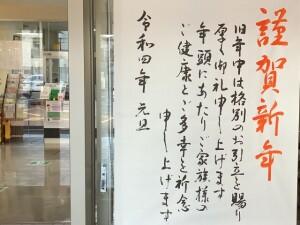 謹賀新年
旧年中は格別のお引立を賜り
厚く御礼申し上げます
年頭にあたりご家族様の
ご健康とご多幸を祈念
申し上げます
令和四年 元旦